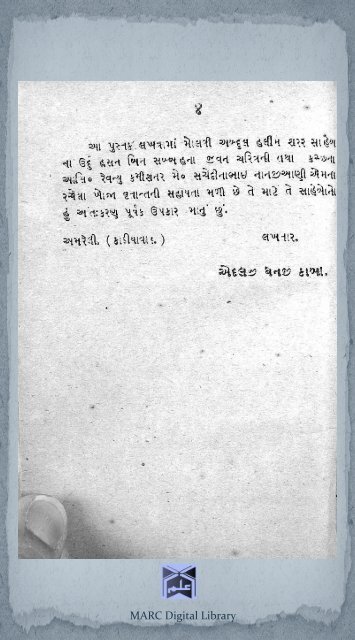 ૪
આ પુસ્તક લખવામાં મોલવી અબ્દુલ હલીમ શરર સાહેબ
ના ઉર્દુ હસન બિન સબ્બાહના જીવન ચરિત્રની તથા કચ્છના
આસિ૦ રેવન્યુ કમીશનર મે૦ સચેદીનાભાઇ નાનજીઆણી એમના
રચેલા ખોજા વૃતાન્તની સહાયતા મળી છે તે માટે તે સાહેબોનો
હું અંતઃકરણ પૂર્વક ઉપકાર માનું છું.
અમરેલી. ( કાઠીયાવાડ. ) લખનાર.
એદલજી ધનજી કાબા.
علم
MARC Digital Library